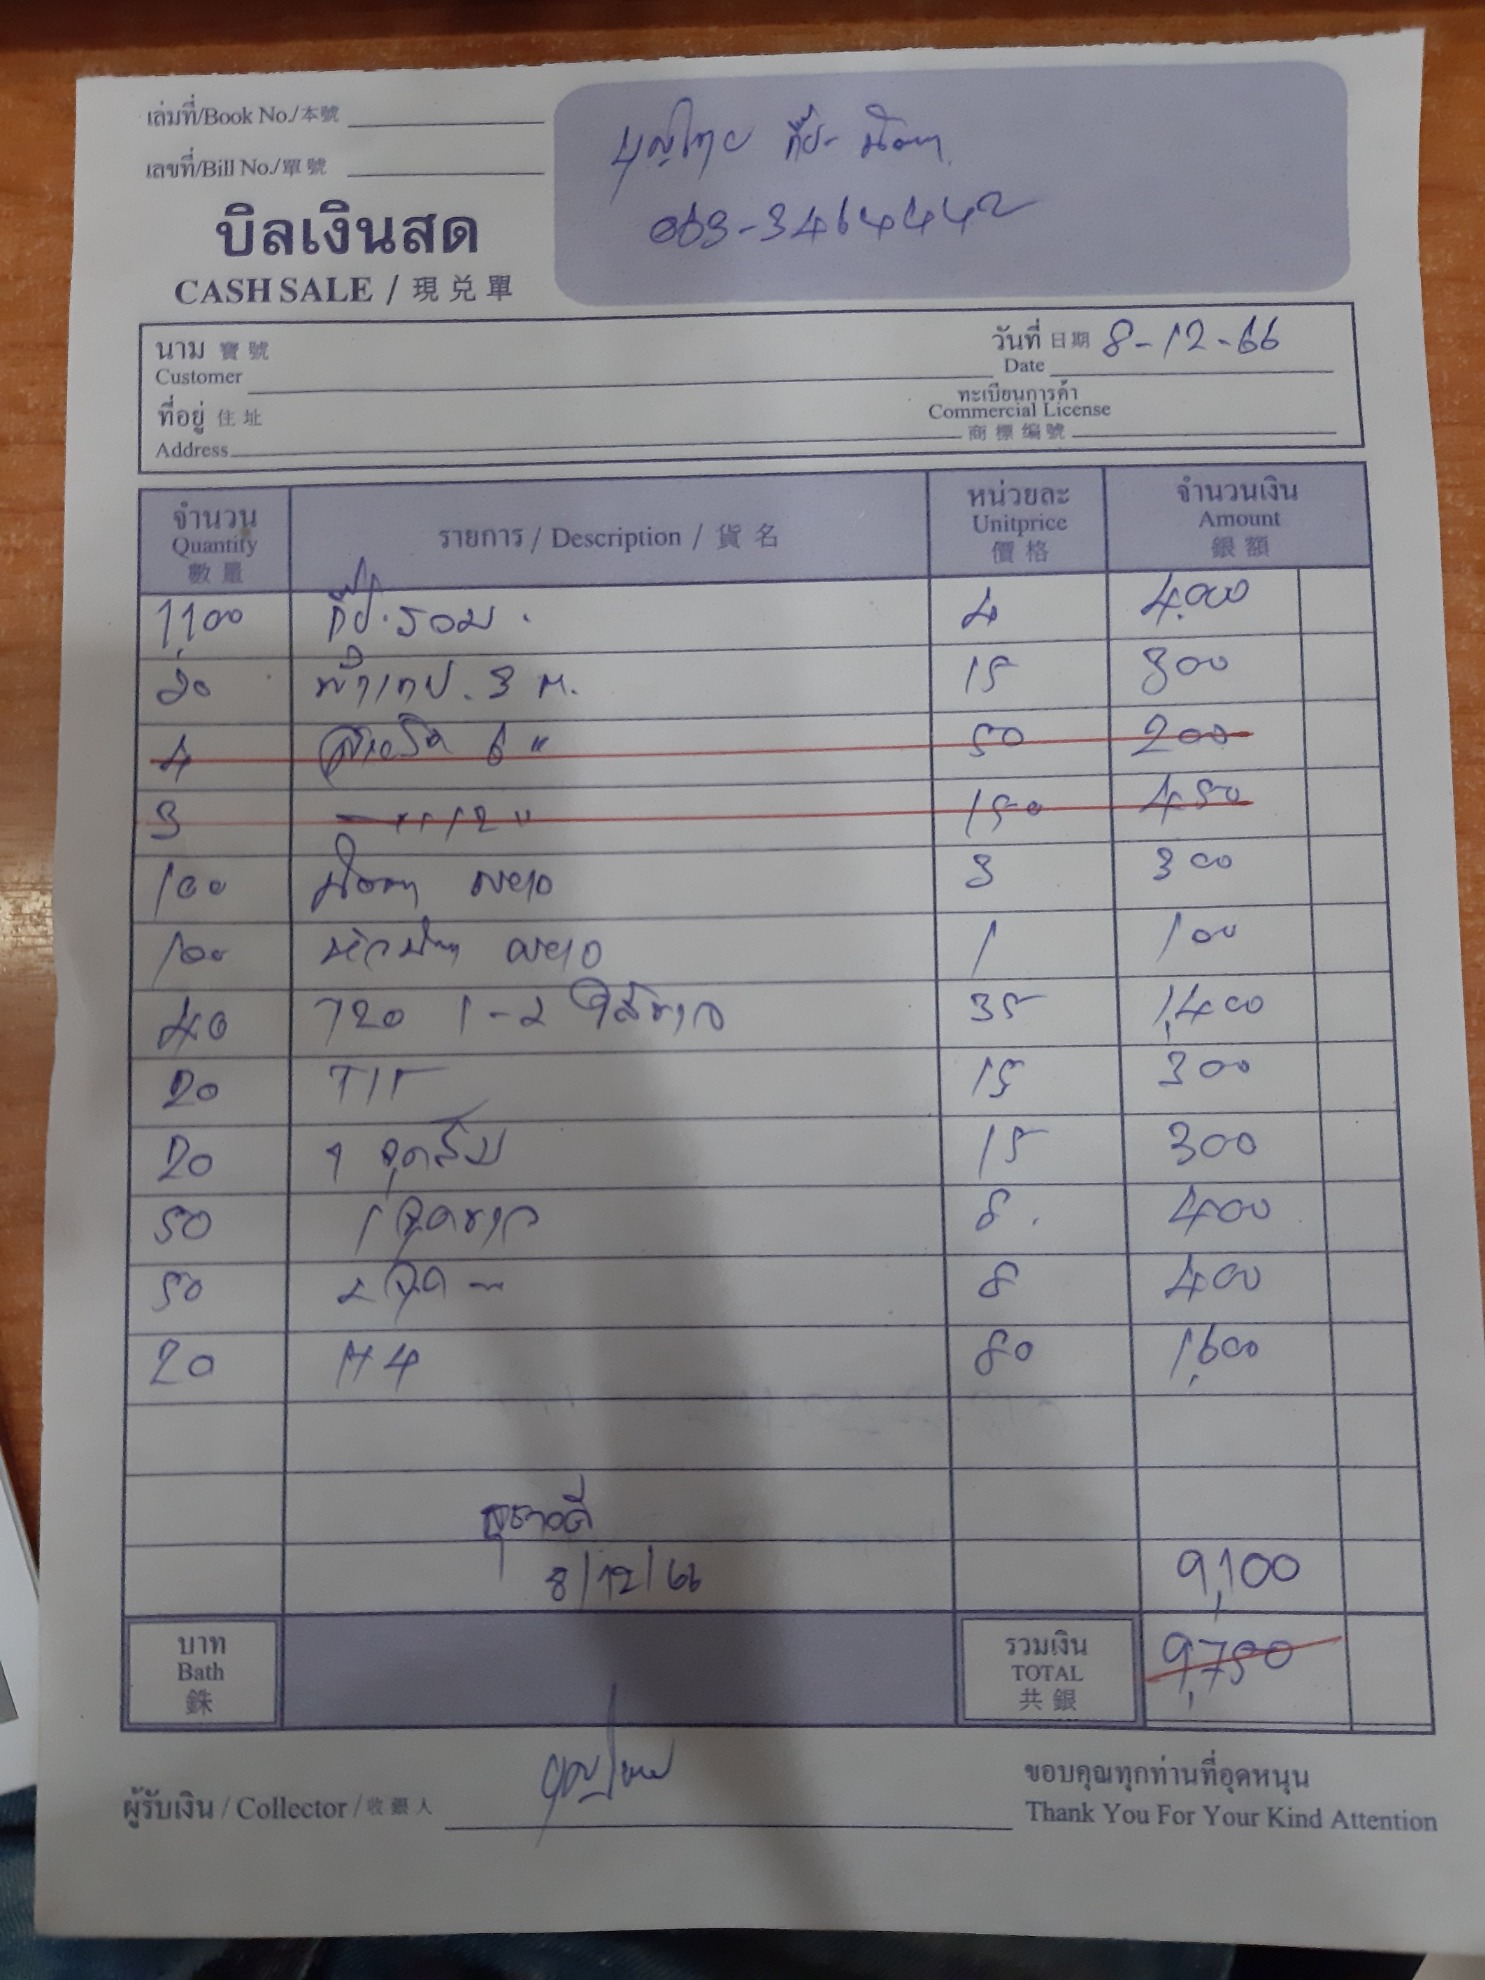 เล่มที่/Book No./本號
เลขที่/Bill No./單號
บุญไทย กิ๊ป- น๊อต
063-3464442
บิลเงินสด
CASH SALE / 現兑單
นาม 寶號 Customer
วันที่ 日期 Date 8-12-66
ที่อยู่ 住址 Address
ทะเบียนการค้า Commercial License 商標编號
จำนวน Quantity 數量 รายการ / Description / 貨名 หน่วยละ Unitprice 價格 จำนวนเงิน Amount 銀額
1,100 กิ๊ป.รวม. 4 4,000
20 ผ้าเทป. 3 m. 15 300
4 6 " 50 200
3 12 " 150 450
100 น๊อต เบอ10 3 300
100 หัวน๊อต เบอ10 1 100
40 720 1-2 ไส้ขาว 35 1,400
20 T15 15 300
20 1 จุดส้ม 15 300
50 1 จุดขาว 8. 400
50 2 จุด ~ 8 400
20 H4 80 1,600
8/12/66
9,100
บาท Bath 銖
รวมเงิน TOTAL 共銀 9,750
ผู้รับเงิน / Collector / 收銀人 บุญไทย
ขอบคุณทุกท่านที่อุดหนุน
Thank You For Your Kind Attention